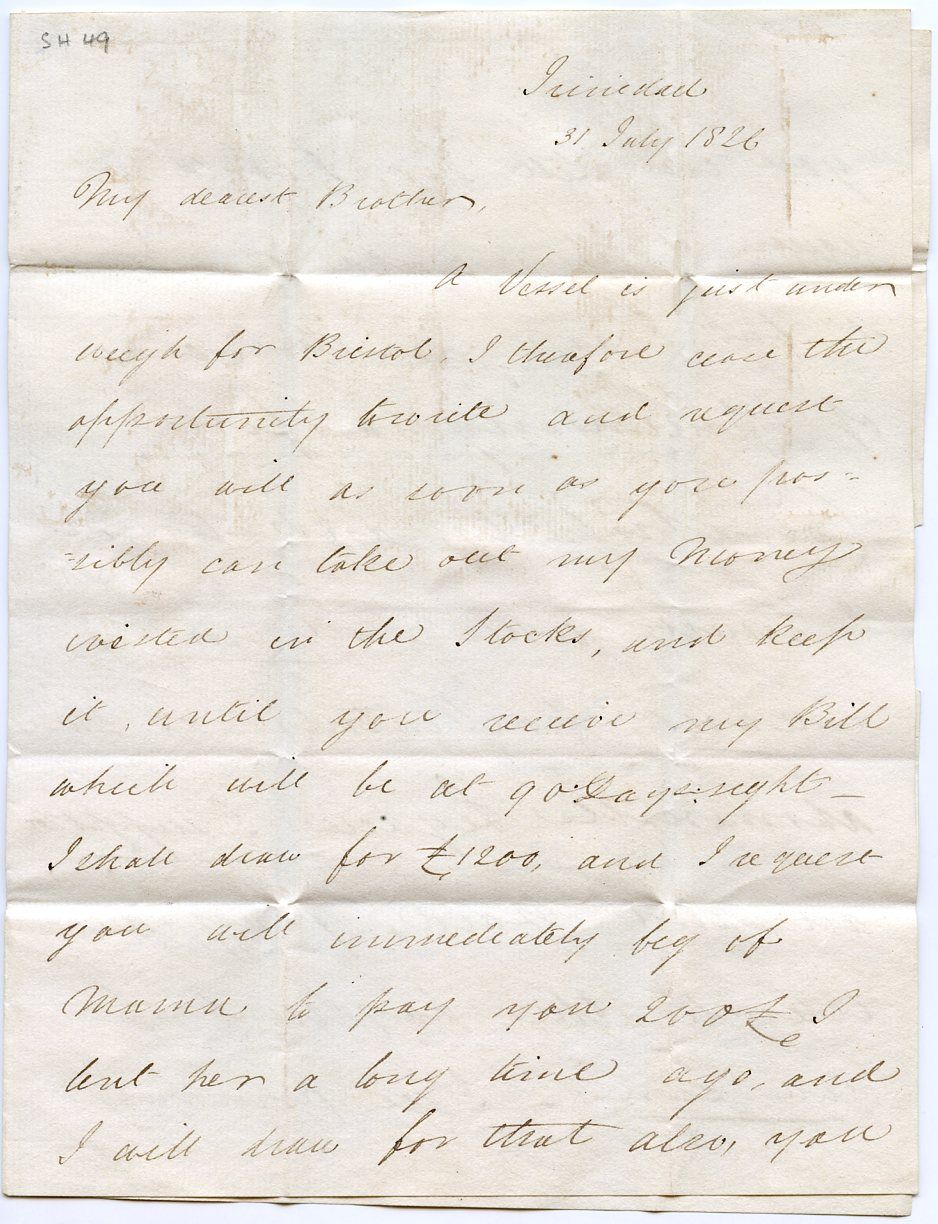 SH 49
Trinidad
31 July 1826
My dearest Brother,
A Vessel is just under
weigh for Bristol, I therefore cease the
opportunity to write and request
you will as soon as you pos=
=sibly can take out my Money
invested in the Stocks, and keep
it, until you receive my Bill
which will be at 90 Days sight —
I shall draw for £1200, and I request
you will immediately beg of
Mama to pay you 200£ I
lent her a long time ago, and
I will draw for that also, you